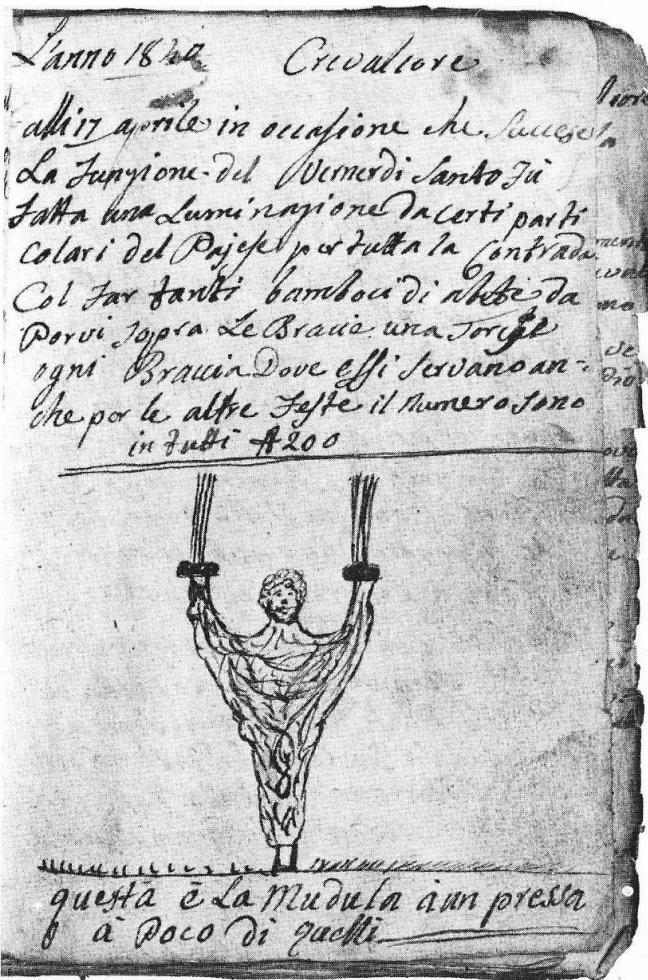 L'anno 1840 Crevalcore
alli 17 aprile in occasione che Succese
La Funzione del Venerdi Santo Fù
Fatta una Luminazione da certi parti
colari del Pajese per tutta la Contrada
Col Far tanti bamboci di abete da
Porvi Sopra Le Bracie una
ogni Braccia Dove essi Servano an-
che per le altre Feste il Numero Sono
in tutti 200
questa è La Mudula àun pressa
à Poco di quelli